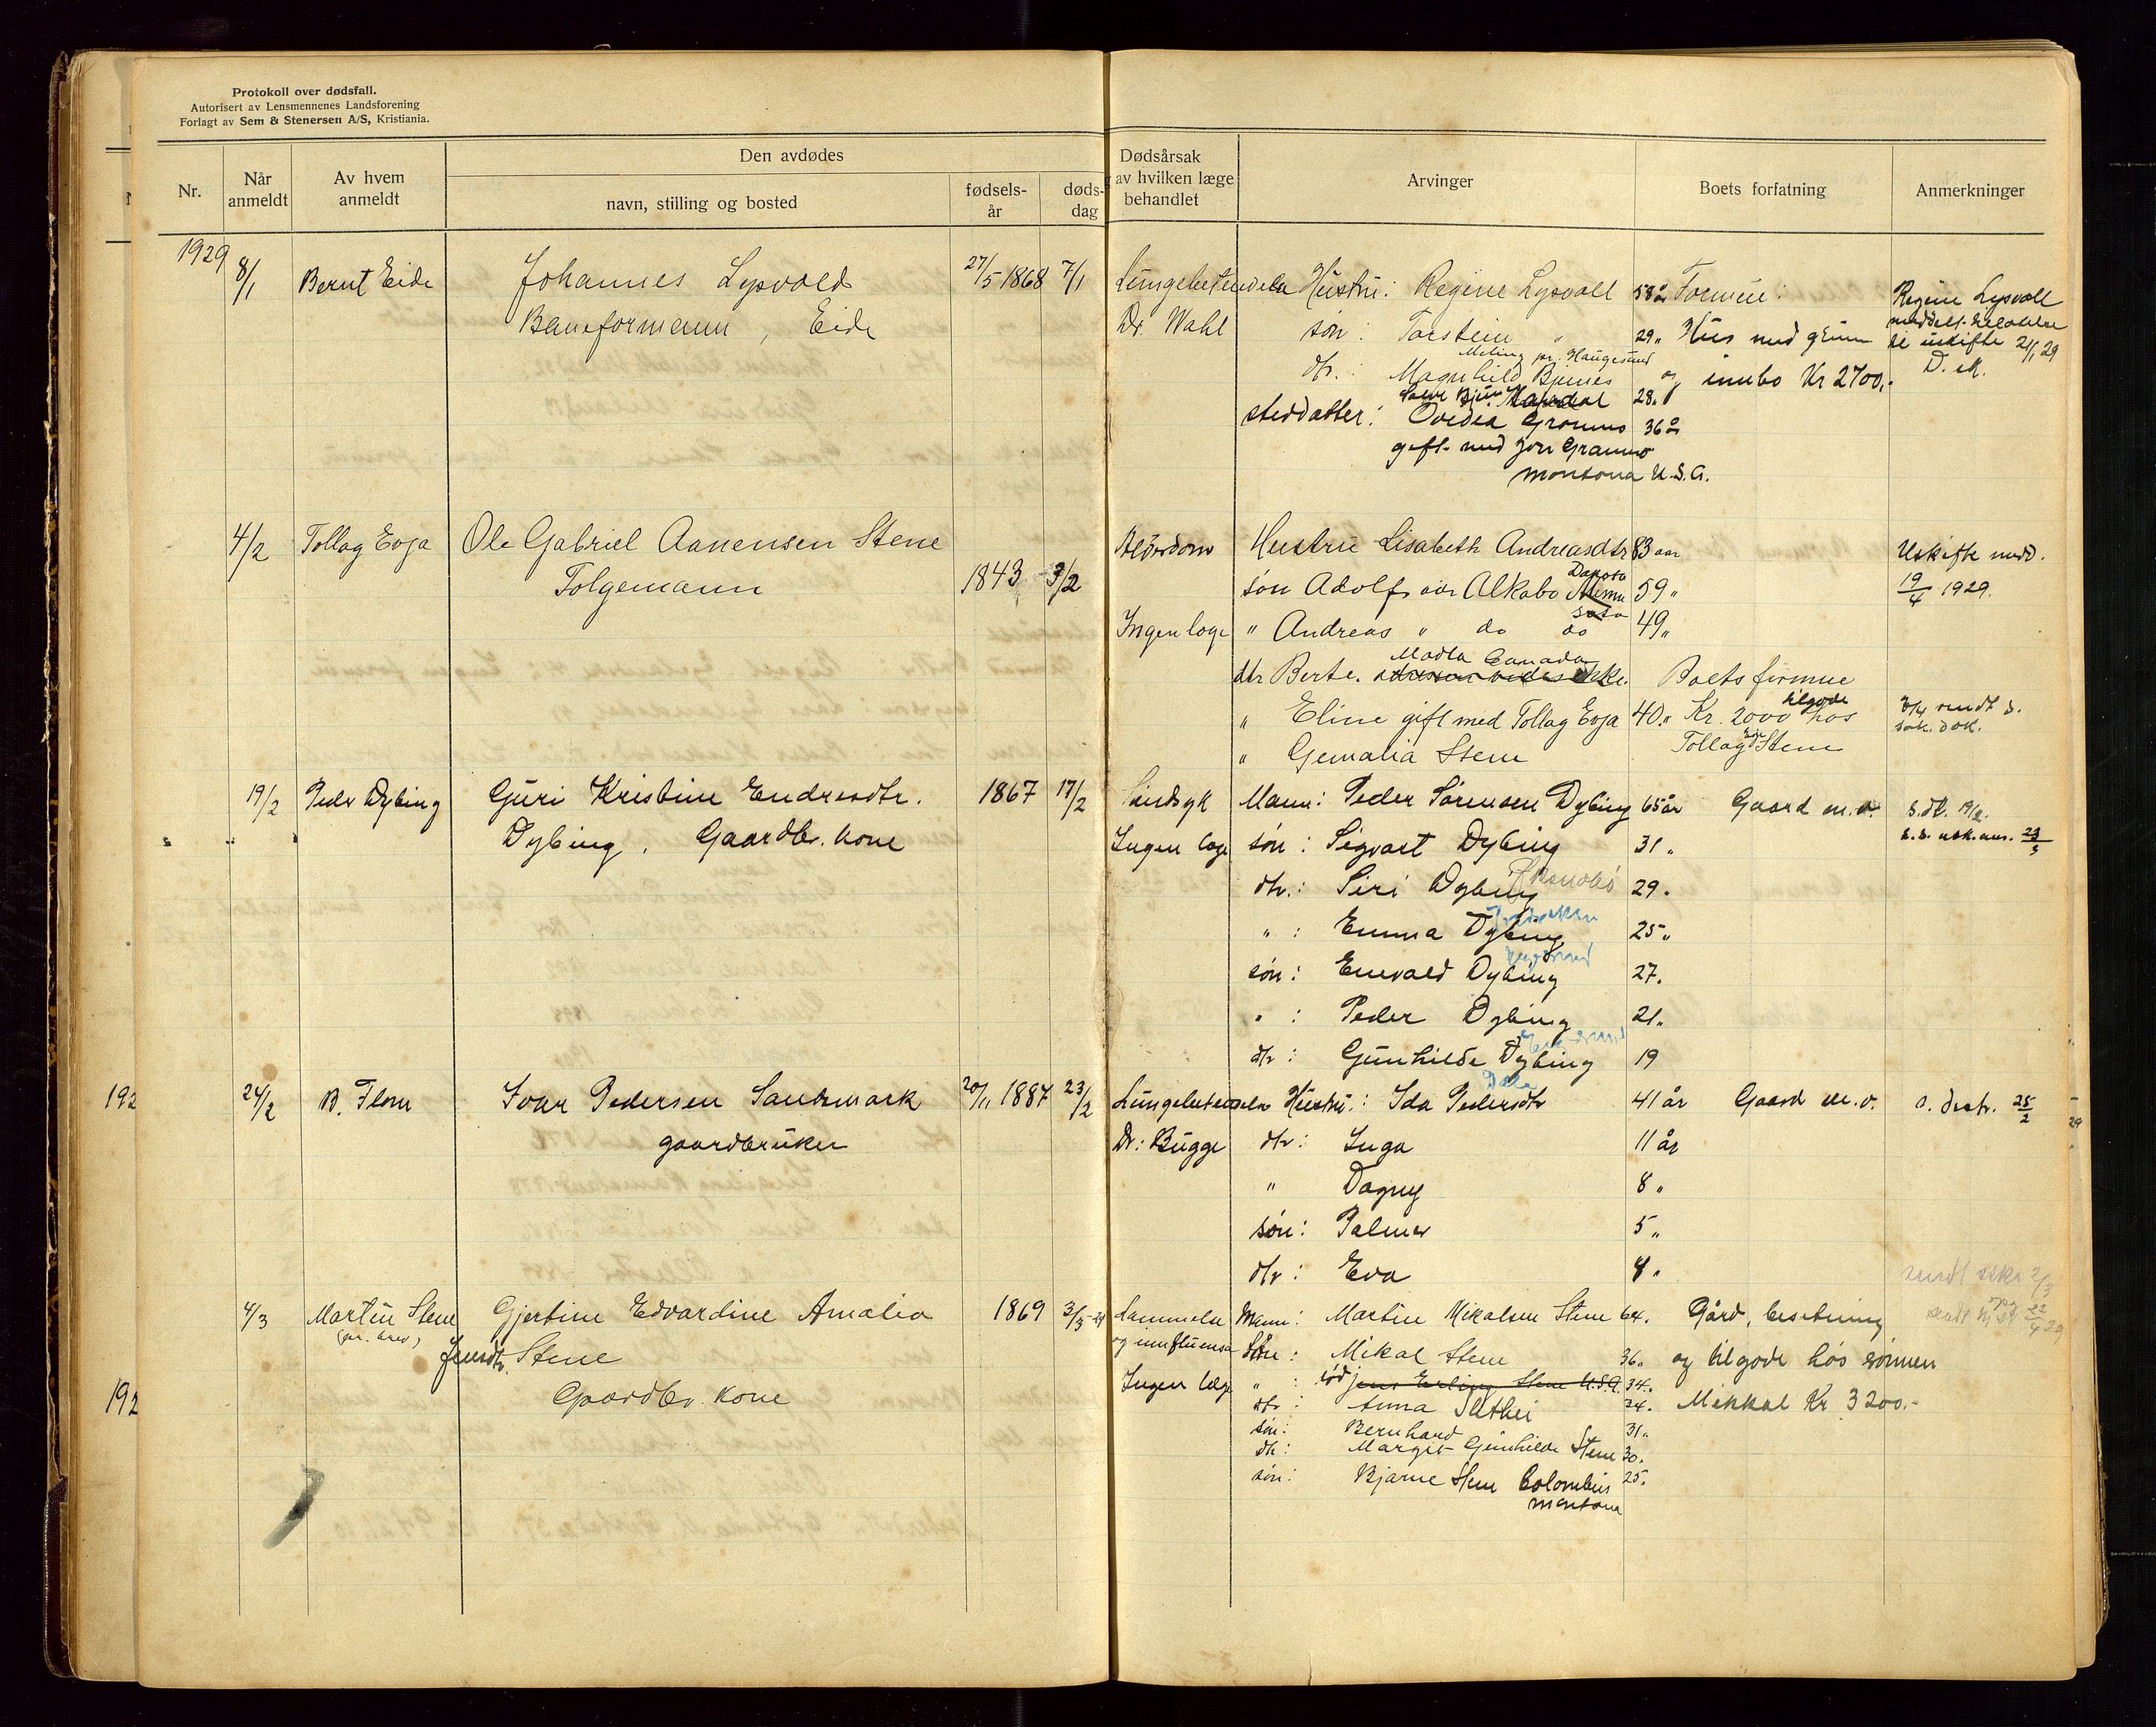 Protokoll over dødsfall.
Autorisert av Lensmennenes Landsforening
Forlagt av Sem & Stenersen A/S, Kristiania.
Nr.
Når anmeldt
Av hvem anmeldt
Den avdødes
navn, stilling og bosted
fødsels-år
døds-dag
Dødsårsak
av hvilken læge
behandlet
Arvinger
Boets forfatning
Anmerkninger
1929
8/1 Bernt Eide Johannes Lysvold 27/5 1868 7/1 Lungebetendelse Hustru: Regine Lysvoll 58 år Formue: Regine Lysvoll
Baneformann, Eide Dr. Wahl søn: Torstein " 29 " Hus med grunn
til uskifte 2/1 29
pr. Haugesund
dtr.: Magnhild Bjunes 28 " og innbo Kr 2700,-
steddatter: Ovedia Gronno 36 år
gift med Jon Granno
montana U.S.A.
4/2 Tollag Eoja Ole Gabriel Aanensen Stene 1843 3/2 Alderdom Hustru Lisabeth Andreasdtr 83 aar Uskifte medd.
Folgemann søn Adolf Alkabo Dakota 59 " 19/4 1929.
Ingen læge " Andreas " do do 49 "
dtr Berte. Canada Boets formue
" Eline gift med Tollag Eoja 40 " Kr. 2000 tilgode hos
" Gemalia Stene Tollag Stene
19/2 Peder Dybing Guri Kristine Endresdtr. 1867 17/2 Sindsyk Mann: Peder Sørensen Dybing 65 år Gaard m.v. s.dk. 19/2.
Dybing. Gaardbr. kone Ingen læge søn: Sigvart Dybing 31 "
dtr.: Siri Dybing 29 "
" : Emma Dybing 25 "
søn: Enevald Dybing 27 "
" : Peder Dybing 21 "
dtr: Gunhilde Dybing 19
192
24/2 B. Flom Ivar Pedersen Sandsmark 20/11 1887 23/2 Lungebetendelse Hustru.: Ida Pedersdtr 41 år Gaard m.v. s. skatr. 25/2
gaardbruker Dr: Bugge dtr: Inga 11 år
" Dagny 8 "
søn: Palmer 5 "
dtr: Eva 8 "
4/3 Martin Stene Gjertine Edvardine Amalia 1869 3/3-29 Mann: Martin Mikalsen Stene 64. Gård, besetning
(pr. brev) Jensdtr. Stene og innfluensa Søn: Mikal Stene 36 " og tilgode hos sønnen
192
Gaardbr. kone Ingen læge " : Jens Erling Stene U.S.A. 34 "
dtr: Anna 34. Mikkal Kr 3200.-
søn: Bernhard 31 "
dtr: Margit Gunhilde Stene 30.
søn: Bjarne Stene Colombus 25.
montana